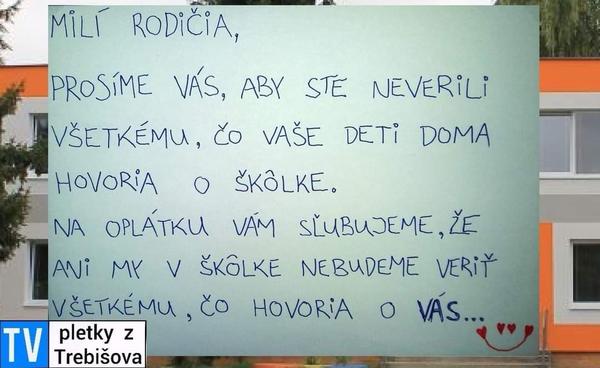 MILÍ RODIČIA,
PROSÍME VÁS, ABY STE NEVERILI
VŠETKÉMU, ČO VAŠE DETI DOMA
HOVORIA O ŠKÔLKE.
NA OPLÁTKU VÁM SĽUBUJEME, ŽE
ANI MY V ŠKÔLKE NEBUDEME VERIŤ
VŠETKÉMU, ČO HOVORIA O VÁS...
TV pletky z
Trebišova